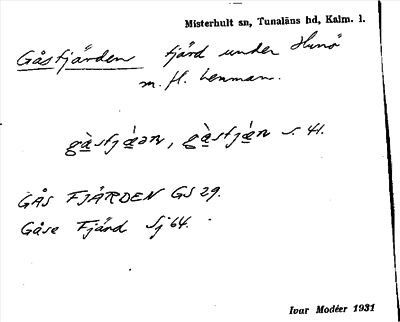 Misterhult sn, Tunaläns hd, Kalm. l.
Gåsfjärden fjärd under Hunö
m. fl. hemman.
gàsfjæ̀ən, gàsfjæ̀n s. 41.
GÅS FJÄRDEN GS 29.
Gåse Fjärd Sj 64.
Ivar Modéer 1931